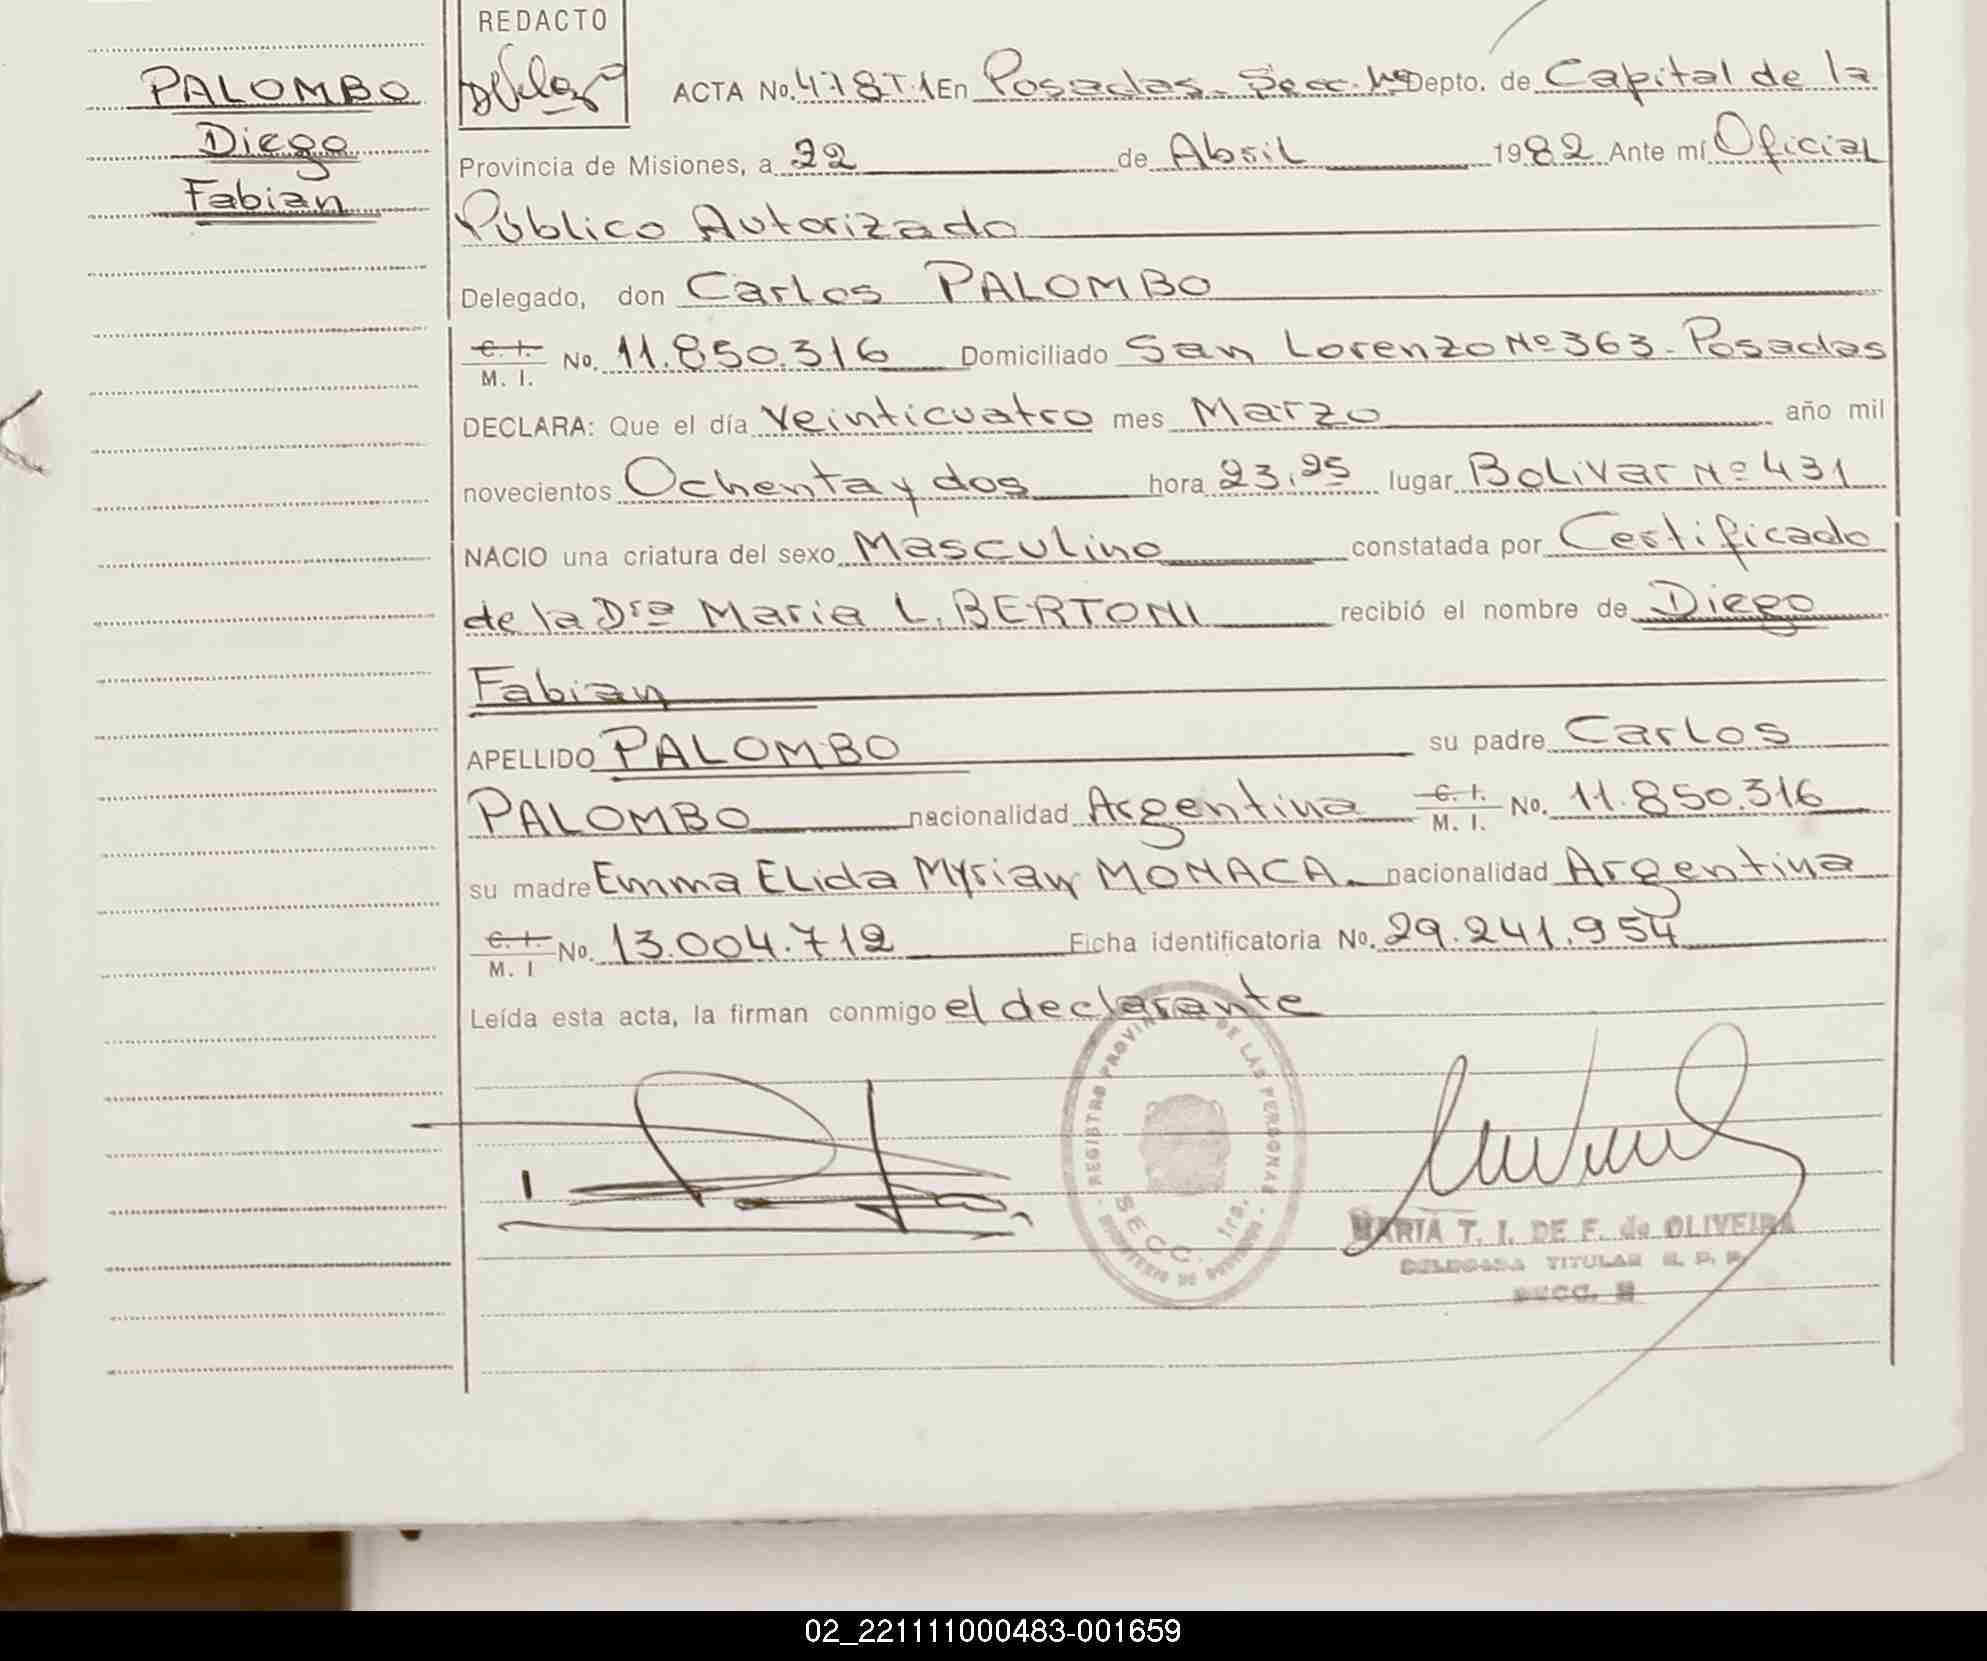 REDACTO
PALOMBO
Diego
Fabian
ACTA No. 478 T.1 En Posadas. Secc. 1ª Depto. de Capital de la
Provincia de Misiones, a 22 de Abril 1982 Ante mí Oficial
Público Autorizado
Delegado, don Carlos PALOMBO
C. I. / M. I. No. 11.850.316 Domiciliado San Lorenzo Nº 363. Posadas
DECLARA: Que el día Veinticuatro mes Marzo año mil
novecientos Ochenta y dos hora 23,25 lugar Bolivar Nº 431
NACIO una criatura del sexo Masculino constatada por Certificado
de la Dra Maria L. BERTONI recibió el nombre de Diego
Fabian
APELLIDO PALOMBO su padre Carlos
PALOMBO nacionalidad Argentina C. I. / M. I. No. 11.850.316
su madre Emma ELida Myrian MONACA. nacionalidad Argentina
C. I. / M. I No. 13.004.712 Ficha identificatoria No. 29.241.954
Leída esta acta, la firman conmigo el declarante
REGISTRO PROVINCIAL DE LAS PERSONAS
SECC. 1ra.
MARIA T. I. DE F. de OLIVEIRA
DELEGADA TITULAR R. P. P.
SECC.
02_221111000483-001659